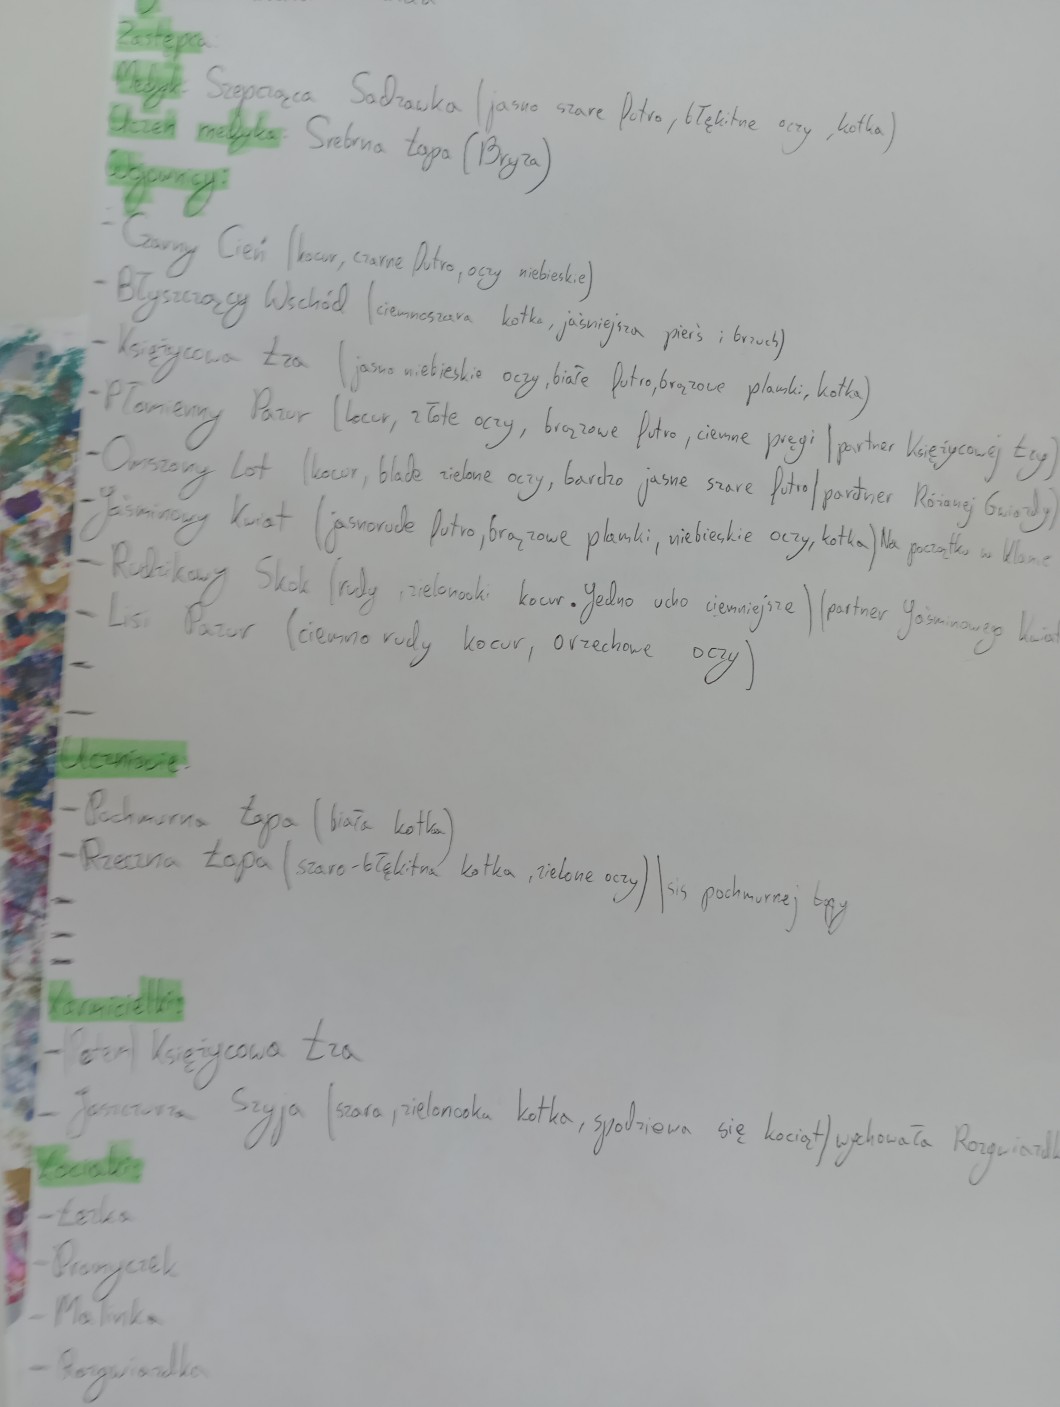 Zastępca:
Medyk: Szepcząca Sadzawka (jasno szare futro, błękitne oczy, kotka)
Uczeń medyka: Srebrna Łapa (Bryza)
Wojownicy:
- Czarny Cień (kocur, czarne futro, oczy niebieskie)
- Błyszczący Wschód (ciemnoszara kotka, jaśniejsza pierś i brzuch)
- Księżycowa Łza (jasno niebieskie oczy, białe futro, brązowe plamki, kotka)
- Płomienny Pazur (kocur, złote oczy, brązowe futro, ciemne pręgi | partner Księżycowej Łzy)
- Omszony Lot (kocur, blade zielone oczy, bardzo jasne szare futro / partner Różanej Gwiazdy)
- Jaśminowy Kwiat (jasnorude futro, brązowe plamki, niebieskie oczy, kotka) Na początku w Klanie
- Rudzikowy Skok (rudy, zielonooki kocur. Jedno ucho ciemniejsze) (partner Jaśminowego Kwiat
- Lisi Pazur (ciemno rudy kocur, orzechowe oczy)
-
-
Uczniowie:
- Pochmurna Łapa (biała kotka)
- Rzeczna Łapa (szaro-błękitna kotka, zielone oczy) | sis pochmurnej łapy
-
-
-
Karmicielki:
- (Potem) Księżycowa Łza
- Jaszczurza Szyja (szara, zielonooka kotka, spodziewa się kociąt) wychowała Rozgwiazdk
Kociaki:
- Łezka
- Promyczek
- Malinka
- Rozgwiazdka